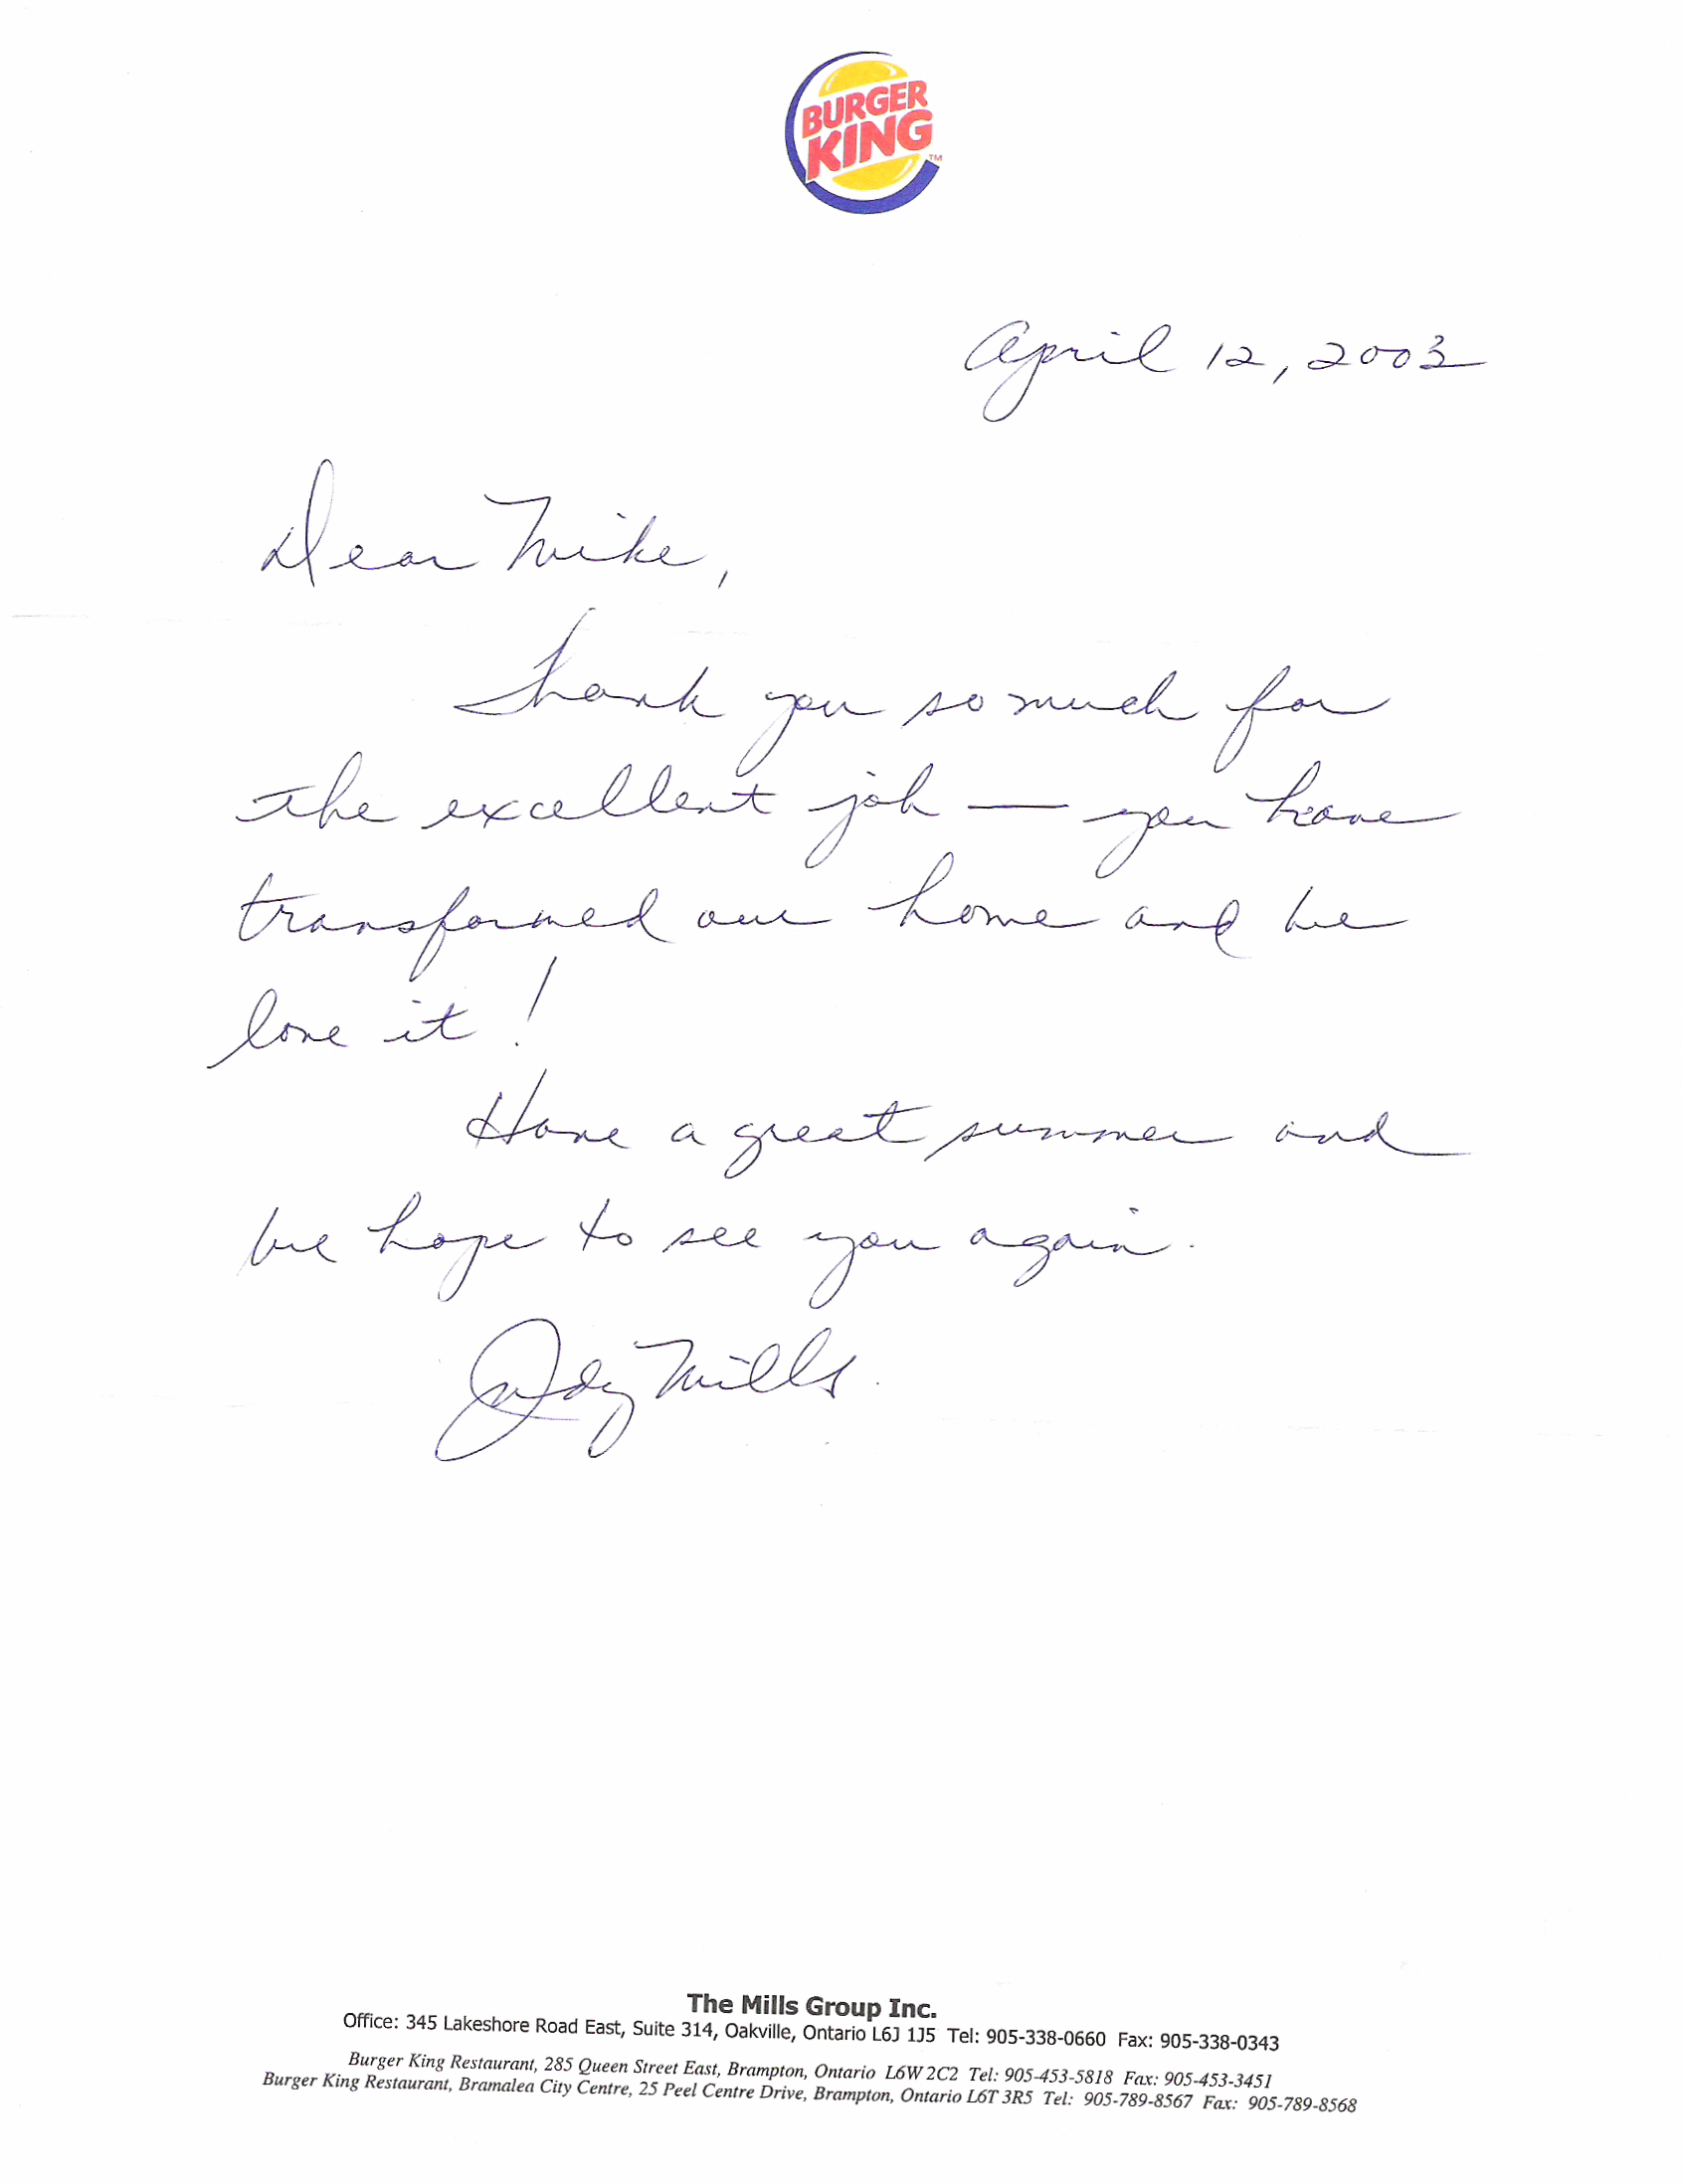 BURGER
KING
TM
April 12, 2003
Dear Mike,
Thank you so much for
the excellent job — you have
transformed our home and we
love it!
Have a great summer and
we hope to see you again.
Judy Mills.
The Mills Group Inc.
Office: 345 Lakeshore Road East, Suite 314, Oakville, Ontario L6J 1J5 Tel: 905-338-0660 Fax: 905-338-0343
Burger King Restaurant, 285 Queen Street East, Brampton, Ontario L6W 2C2 Tel: 905-453-5818 Fax: 905-453-3451
Burger King Restaurant, Bramalea City Centre, 25 Peel Centre Drive, Brampton, Ontario L6T 3R5 Tel: 905-789-8567 Fax: 905-789-8568